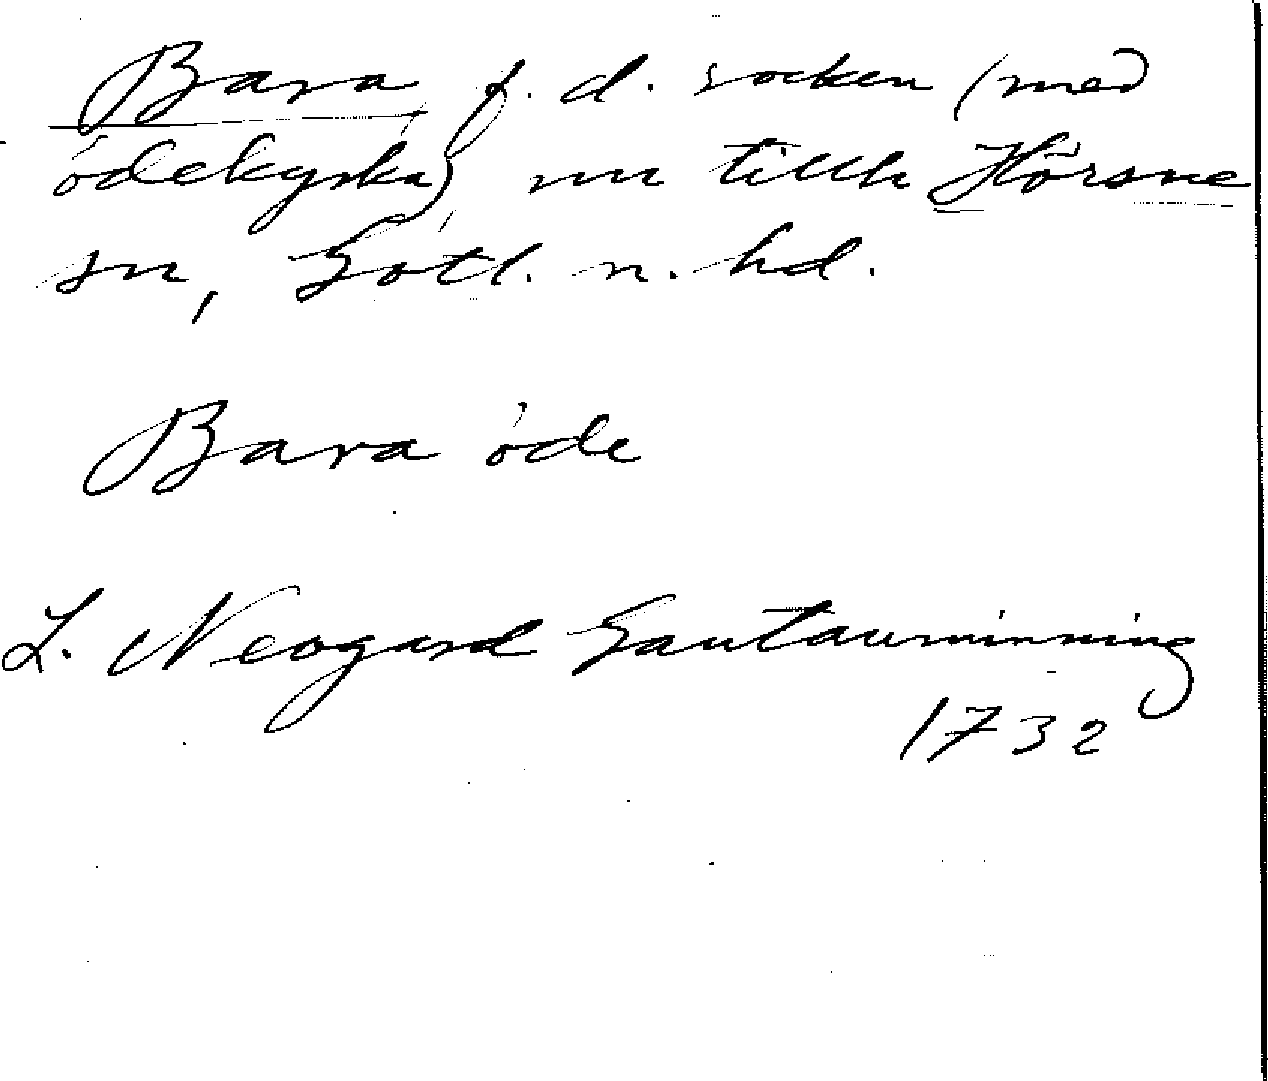 Bara f. d. socken (med
ödekyrka) nu tillh Hörsne
sn, Gotl. n. hd.
Bara öde
L. Neogard Gautauminning
1732